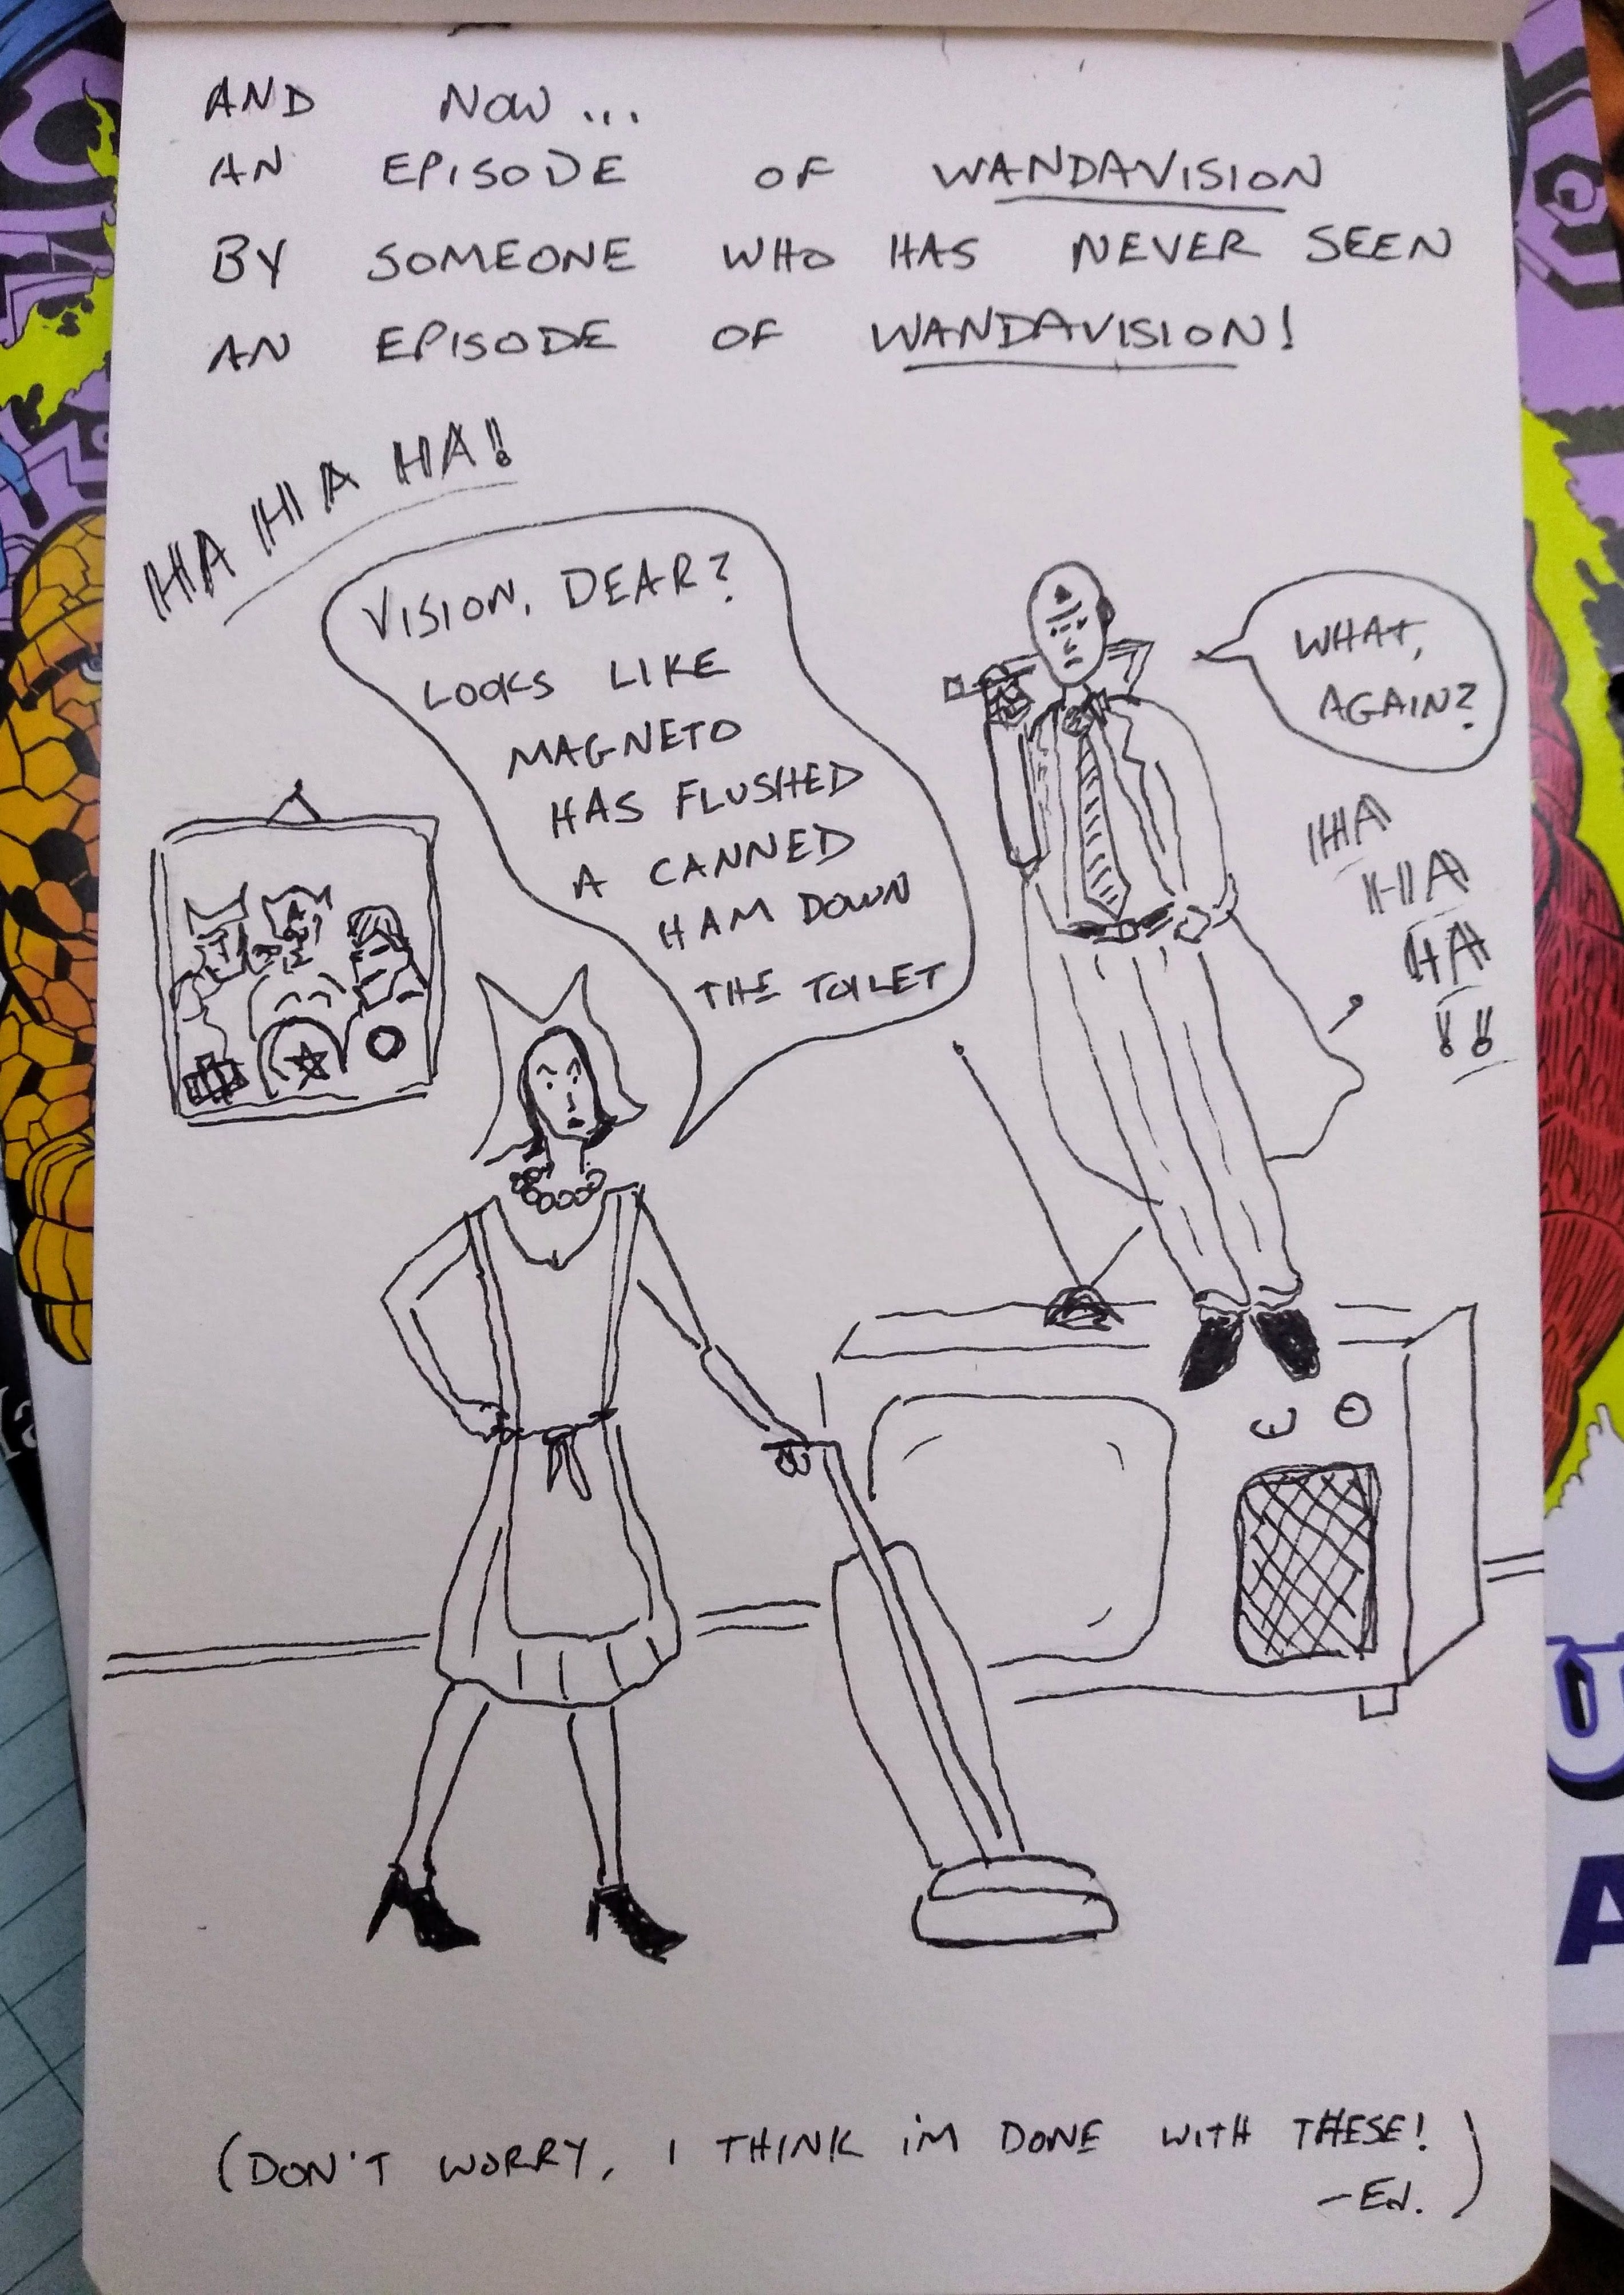 AND NOW...
AN EPISODE OF WANDAVISION
BY SOMEONE WHO HAS NEVER SEEN
AN EPISODE OF WANDAVISION!
HA HA HA!
VISION, DEAR?
LOOKS LIKE
MAGNETO
HAS FLUSHED
A CANNED
HAM DOWN
THE TOILET
WHAT,
AGAIN?
HA
HA
HA
!!
(DON'T WORRY, I THINK I'M DONE WITH THESE!
-ED.)
A